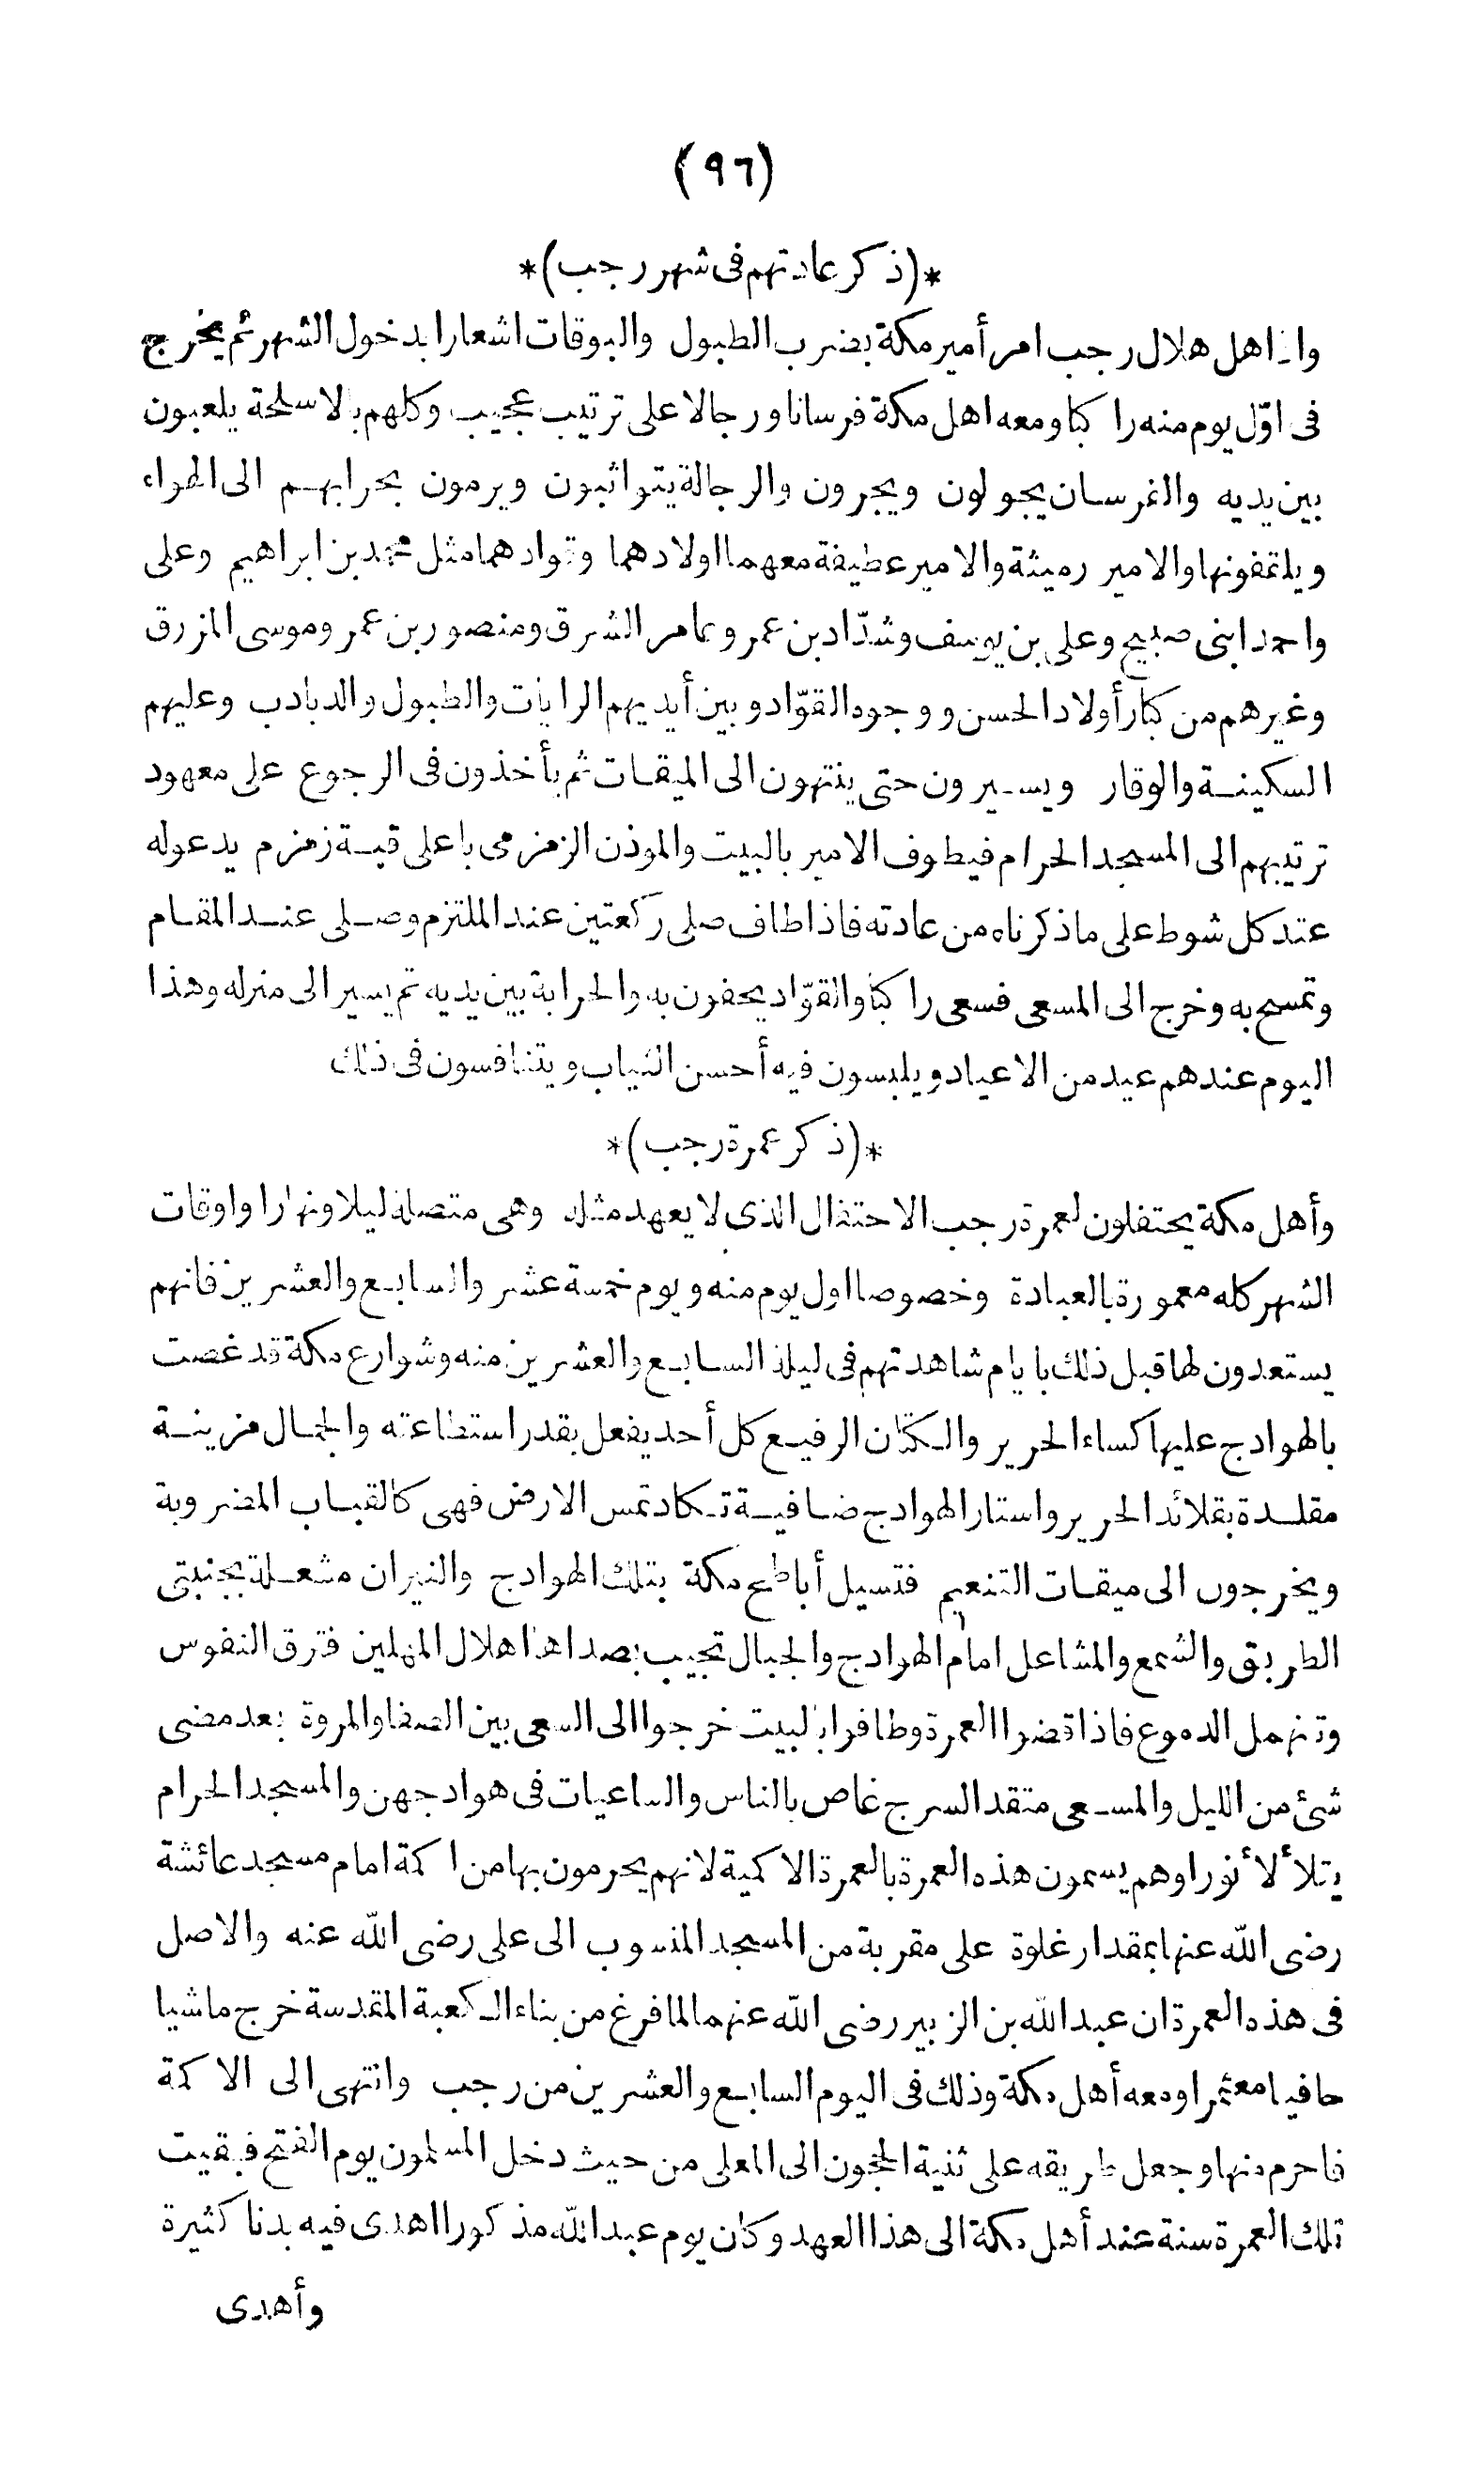 (٩٦)
*(ذكر عادتهم فى شهر رجب)*
واذا هل هلال رجب امر أمير مكة بضرب الطبول والبوقات اشعارا بدخول الشهر ثم يخرج
فى اوّل يوم منه راكبا ومعه اهل مكة فرسانا ورجالا على ترتيب عجيب وكلهم بالاسلحة يلعبون
بين يديه والفرسان يجولون ويجرون والرجالة يتواثبون ويرمون بحرابهم الى الهواء
ويلقفونها والامير رميثة والامير عطيفة معهما اولادهما وقوادهما مثل محمد بن ابراهيم وعلى
واحمد ابنى صبيح وعلى بن يوسف وشدّاد بن عمر وعامر الشرق ومنصور بن عمر وموسى المزرق
وغيرهم من كبار أولاد الحسن ووجوه القوّاد وبين أيديهم الرايات والطبول والدبادب وعليهم
السكينة والوقار ويسيرون حتى ينتهون الى الميقات ثم يأخذون فى الرجوع على معهود
ترتيبهم الى المسجد الحرام فيطوف الامير بالبيت والموذن الزمزمى باعلى قبة زمزم يدعو له
عتد كل شوط على ما ذكرناه من عادته فاذا طاف صلى ركعتين عند الملتزم وصلى عند المقام
وتمسح به وخرج الى المسعى فسعى راكبا والقوّاد يحفون به والحرابة بين يديه ثم يسير الى منزله وهذا
اليوم عندهم عيد من الاعياد ويلبسون فيه أحسن الثياب ويتنافسون فى ذلك
*(ذكر عمرة رجب)*
وأهل مكة يحتفلون لعمرة رجب الاحتفال الذى لا يعهد مثله وهى متصلة ليلا ونهارا واوقات
الشهر كله معمورة بالعبادة وخصوصا اول يوم منه ويوم خمسة عشر والسابع والعشرين فانهم
يستعدون لها قبل ذلك بايام شاهدتهم فى ليلة السابع والعشرين منه وشوارع مكة قد غصت
بالهوادج عليها كساء الحرير والكتان الرفيع كل أحد يفعل بقدر استطاعته والجمال مزينة
مقلدة بقلائد الحرير واستار الهوادج ضافية تكاد تمس الارض فهى كالقباب المضروبة
ويخرجون الى ميقات التنعيم فتسيل أباطح مكة بتلك الهوادج والنيران مشعلة بجنبتى
الطريق والشمع والمشاعل امام الهوادج والجبال تجيب بصداها اهلال المهلين فترق النفوس
وتنهمل الدموع فاذا قضوا العمرة وطافوا بالبيت خرجوا الى السعى بين الصفا والمروة بعد مضى
شئ من الليل والمسعى متقد السرج غاص بالناس والساعيات فى هوادجهن والمسجد الحرام
يتلأ لأ نورا وهم يسمون هذه العمرة بالعمرة الاكمية لانهم يحرمون بها من اكمة امام مسجد عائشة
رضى الله عنها بمقدار غلوة على مقربة من المسجد المنسوب الى على رضى الله عنه والاصل
فى هذه العمرة ان عبد الله بن الزبير رضى الله عنهما لما فرغ من بناء الكعبة المقدسة خرج ماشيا
حافيا معتمرا ومعه أهل مكة وذلك فى اليوم السابع والعشرين من رجب وانتهى الى الاكمة
فاحرم منها وجعل طريقه على ثنية الحجون الى المعلى من حيث دخل المسلمون يوم الفتح فبقيت
تلك العمرة سنة عند أهل مكة الى هذا العهد وكان يوم عبد الله مذكورا اهدى فيه بدنا كثيرة
وأهدى